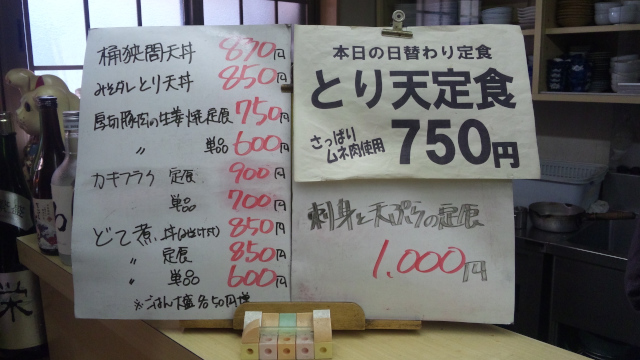 桶狭間天丼 870円
みそダレとり天丼 850円
厚切豚肉の生姜焼定食 750円
〃 単品 600円
カキフライ 定食 900円
単品 700円
どて煮 丼(みそ汁付) 850円
〃 定食 850円
〃 単品 600円
※ごはん大盛各50円増
本日の日替わり定食
とり天定食
さっぱり
ムネ肉使用 750円
刺身と天ぷらの定食
1,000円
栄